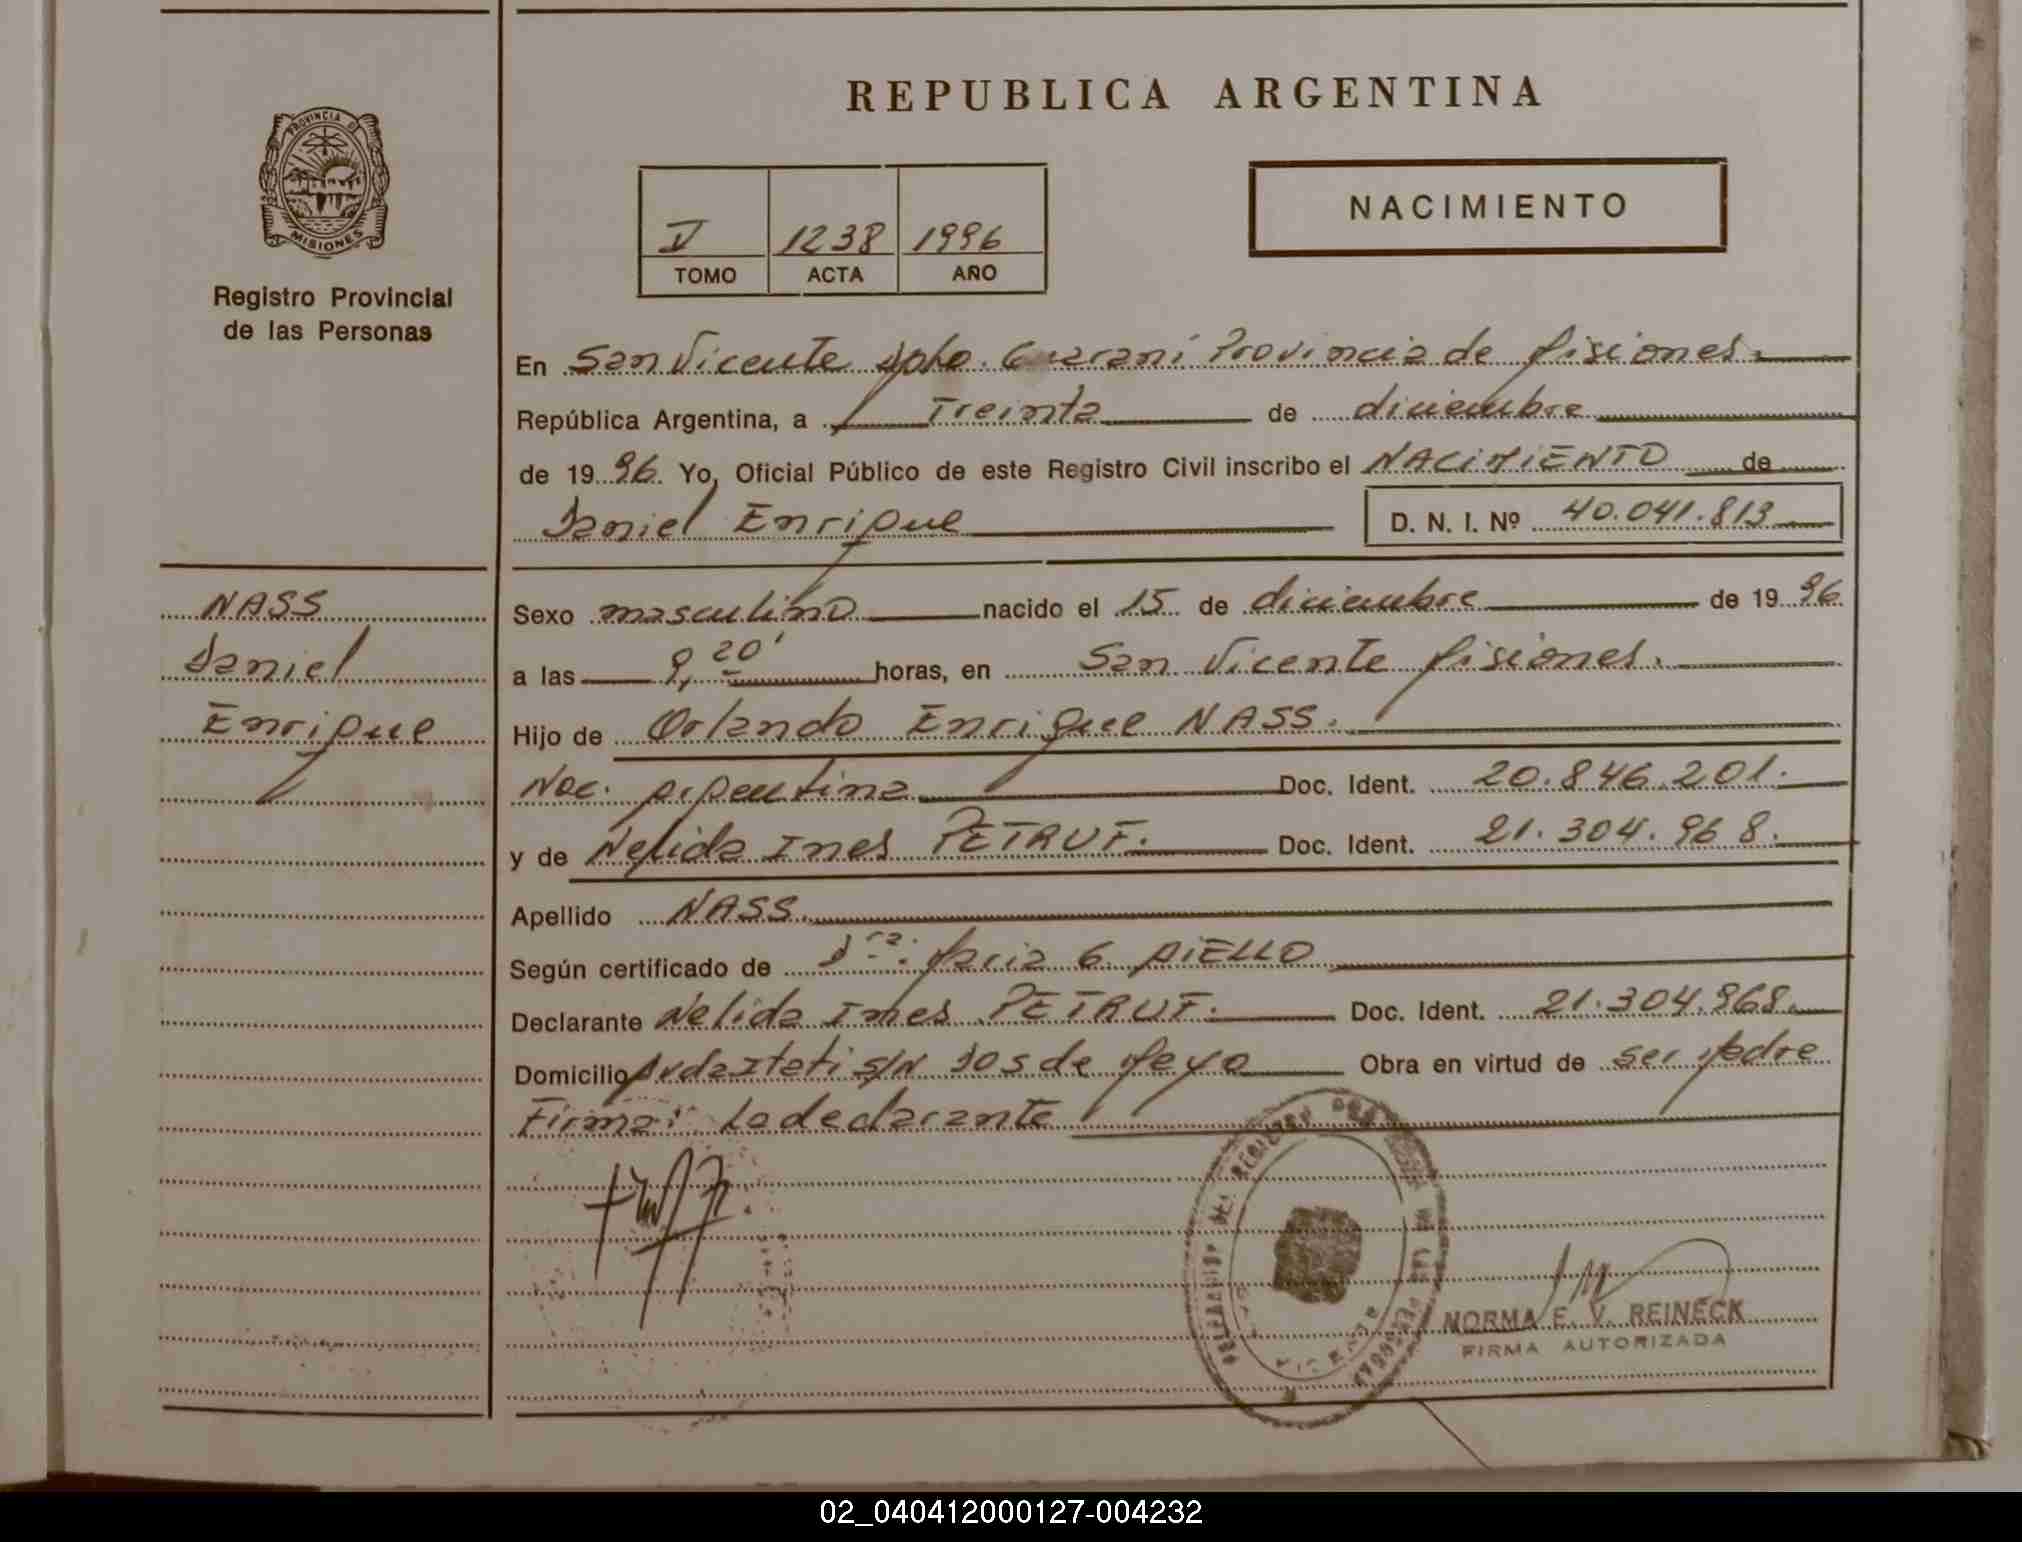 REPUBLICA ARGENTINA
PROVINCIA DE
MISIONES
Registro Provincial
de las Personas
V 1238 1996
TOMO ACTA AÑO
NACIMIENTO
En San Vicente Dpto. Guaraní Provincia de Misiones.
República Argentina, a Treinta de diciembre
de 1996. Yo, Oficial Público de este Registro Civil inscribo el NACIMIENTO de
Daniel Enrique D. N. I. Nº 40.041.813
NASS
Daniel
Enrique
Sexo masculino nacido el 15 de diciembre de 1996
a las 9,20' horas, en San Vicente Misiones.
Hijo de Orlando Enrique NASS.
Nac. Argentina Doc. Ident. 20.846.201.
y de Nelida Ines PETRUF. Doc. Ident. 21.304.968.
Apellido NASS.
Según certificado de Dra. Maria G. AIELLO
Declarante Nelida Ines PETRUF. Doc. Ident. 21.304.968.
Domicilio Avda Itati S/N Dos de Mayo Obra en virtud de ser Madre
Firma: La declarante
NORMA E. V. REINECK
FIRMA AUTORIZADA
02_040412000127-004232